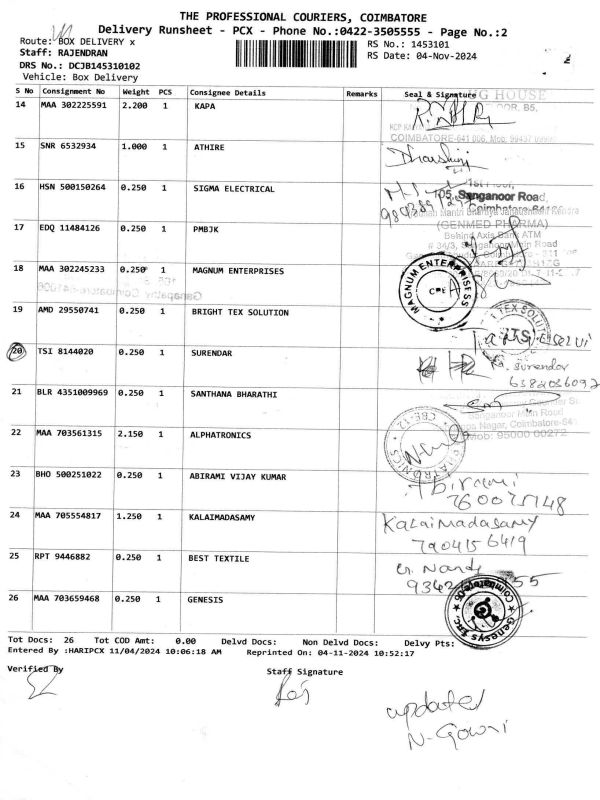 THE PROFESSIONAL COURIERS, COIMBATORE
Delivery Runsheet - PCX - Phone No.:0422-3505555 - Page No.:2
Route: BOX DELIVERY x
RS No.: 1453101
Staff: RAJENDRAN
RS Date: 04-Nov-2024
DRS No.: DCJB145310102
Vehicle: Box Delivery
S No Consignment No Weight PCS Consignee Details Remarks Seal & Signature
14 MAA 302225591 2.200 1 KAPA
COIMBATORE-641 006,
15 SNR 6532934 1.000 1 ATHIRE
16 HSN 500150264 0.250 1 SIGMA ELECTRICAL
Sanganoor Road,
Coimbatore
17 EDQ 11484126 0.250 1 PMBJK
(GENMED PHARMA)
Behind Axis Bank ATM
# 34/3, Sanganoor Main Road
18 MAA 302245233 0.250 1 MAGNUM ENTERPRISES
MAGNUM ENTERPRISESS
CBE
Ganapathy Coimbatore-641006
19 AMD 29550741 0.250 1 BRIGHT TEX SOLUTION
TEX SOLUTI
20 TSI 8144020 0.250 1 SURENDAR
Surendar
6382036092
21 BLR 4351009969 0.250 1 SANTHANA BHARATHI
Sanganoor Main Road
Nagar, Coimbatore-641
Mob: 95000 00272
22 MAA 703561315 2.150 1 ALPHATRONICS
CBE-12
23 BHO 500251022 0.250 1 ABIRAMI VIJAY KUMAR
Abirami
24 MAA 705554817 1.250 1 KALAIMADASAMY
Kalaimadasamy
7904156419
25 RPT 9446882 0.250 1 BEST TEXTILE
26 MAA 703659468 0.250 1 GENESIS
Genesys Inc.
Coimbatore-06
Tot Docs: 26 Tot COD Amt: 0.00 Delvd Docs: Non Delvd Docs: Delvy Pts:
Entered By :HARIPCX 11/04/2024 10:06:18 AM Reprinted On: 04-11-2024 10:52:17
Verified By
Staff Signature
updated
N-Gowri